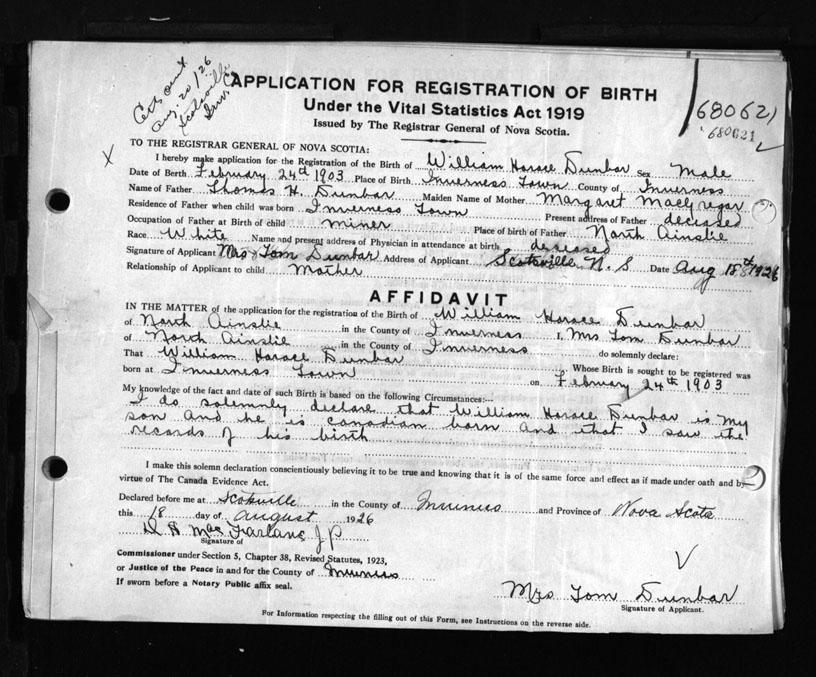 Certs sent
Aug. 20/26
Scotsville
Inver. Co
APPLICATION FOR REGISTRATION OF BIRTH
Under the Vital Statistics Act 1919
Issued by The Registrar General of Nova Scotia.
680621
680621
TO THE REGISTRAR GENERAL OF NOVA SCOTIA:
X
I hereby make application for the Registration of the Birth of William Horace Dunbar Sex Male
Date of Birth February 24th 1903 Place of Birth Inverness Town County of Inverness
Name of Father Thomas H. Dunbar Maiden Name of Mother Margaret MacGregor
Residence of Father when child was born Inverness Town Present address of Father deceased
Occupation of Father at Birth of child miner Place of birth of Father North Ainslie
Race White Name and present address of Physician in attendance at birth deceased
Signature of Applicant Mrs Tom Dunbar Address of Applicant Scotsville N. S Date Aug 18th 1926
Relationship of Applicant to child Mother
AFFIDAVIT
IN THE MATTER of the application for the registration of the Birth of William Horace Dunbar
of North Ainslie in the County of Inverness I, Mrs Tom Dunbar
of North Ainslie in the County of Inverness do solemnly declare:
That William Horace Dunbar Whose Birth is sought to be registered was
born at Inverness Town on February 24th 1903
My knowledge of the fact and date of such Birth is based on the following Circumstances:—
I do solemnly declare that William Horace Dunbar is my
son and he is canadian born and that I saw the
records of his birth
I make this solemn declaration conscientiously believing it to be true and knowing that it is of the same force and effect as if made under oath and by
virtue of The Canada Evidence Act.
Declared before me at Scotsville in the County of Inverness and Province of Nova Scotia
this 18 day of August 1926
D H MacFarlane J P
Signature of
Commissioner under Section 5, Chapter 38, Revised Statutes, 1923,
or Justice of the Peace in and for the County of Inverness
If sworn before a Notary Public affix seal.
Mrs Tom Dunbar
Signature of Applicant.
For Information respecting the filling out of this Form, see Instructions on the reverse side.